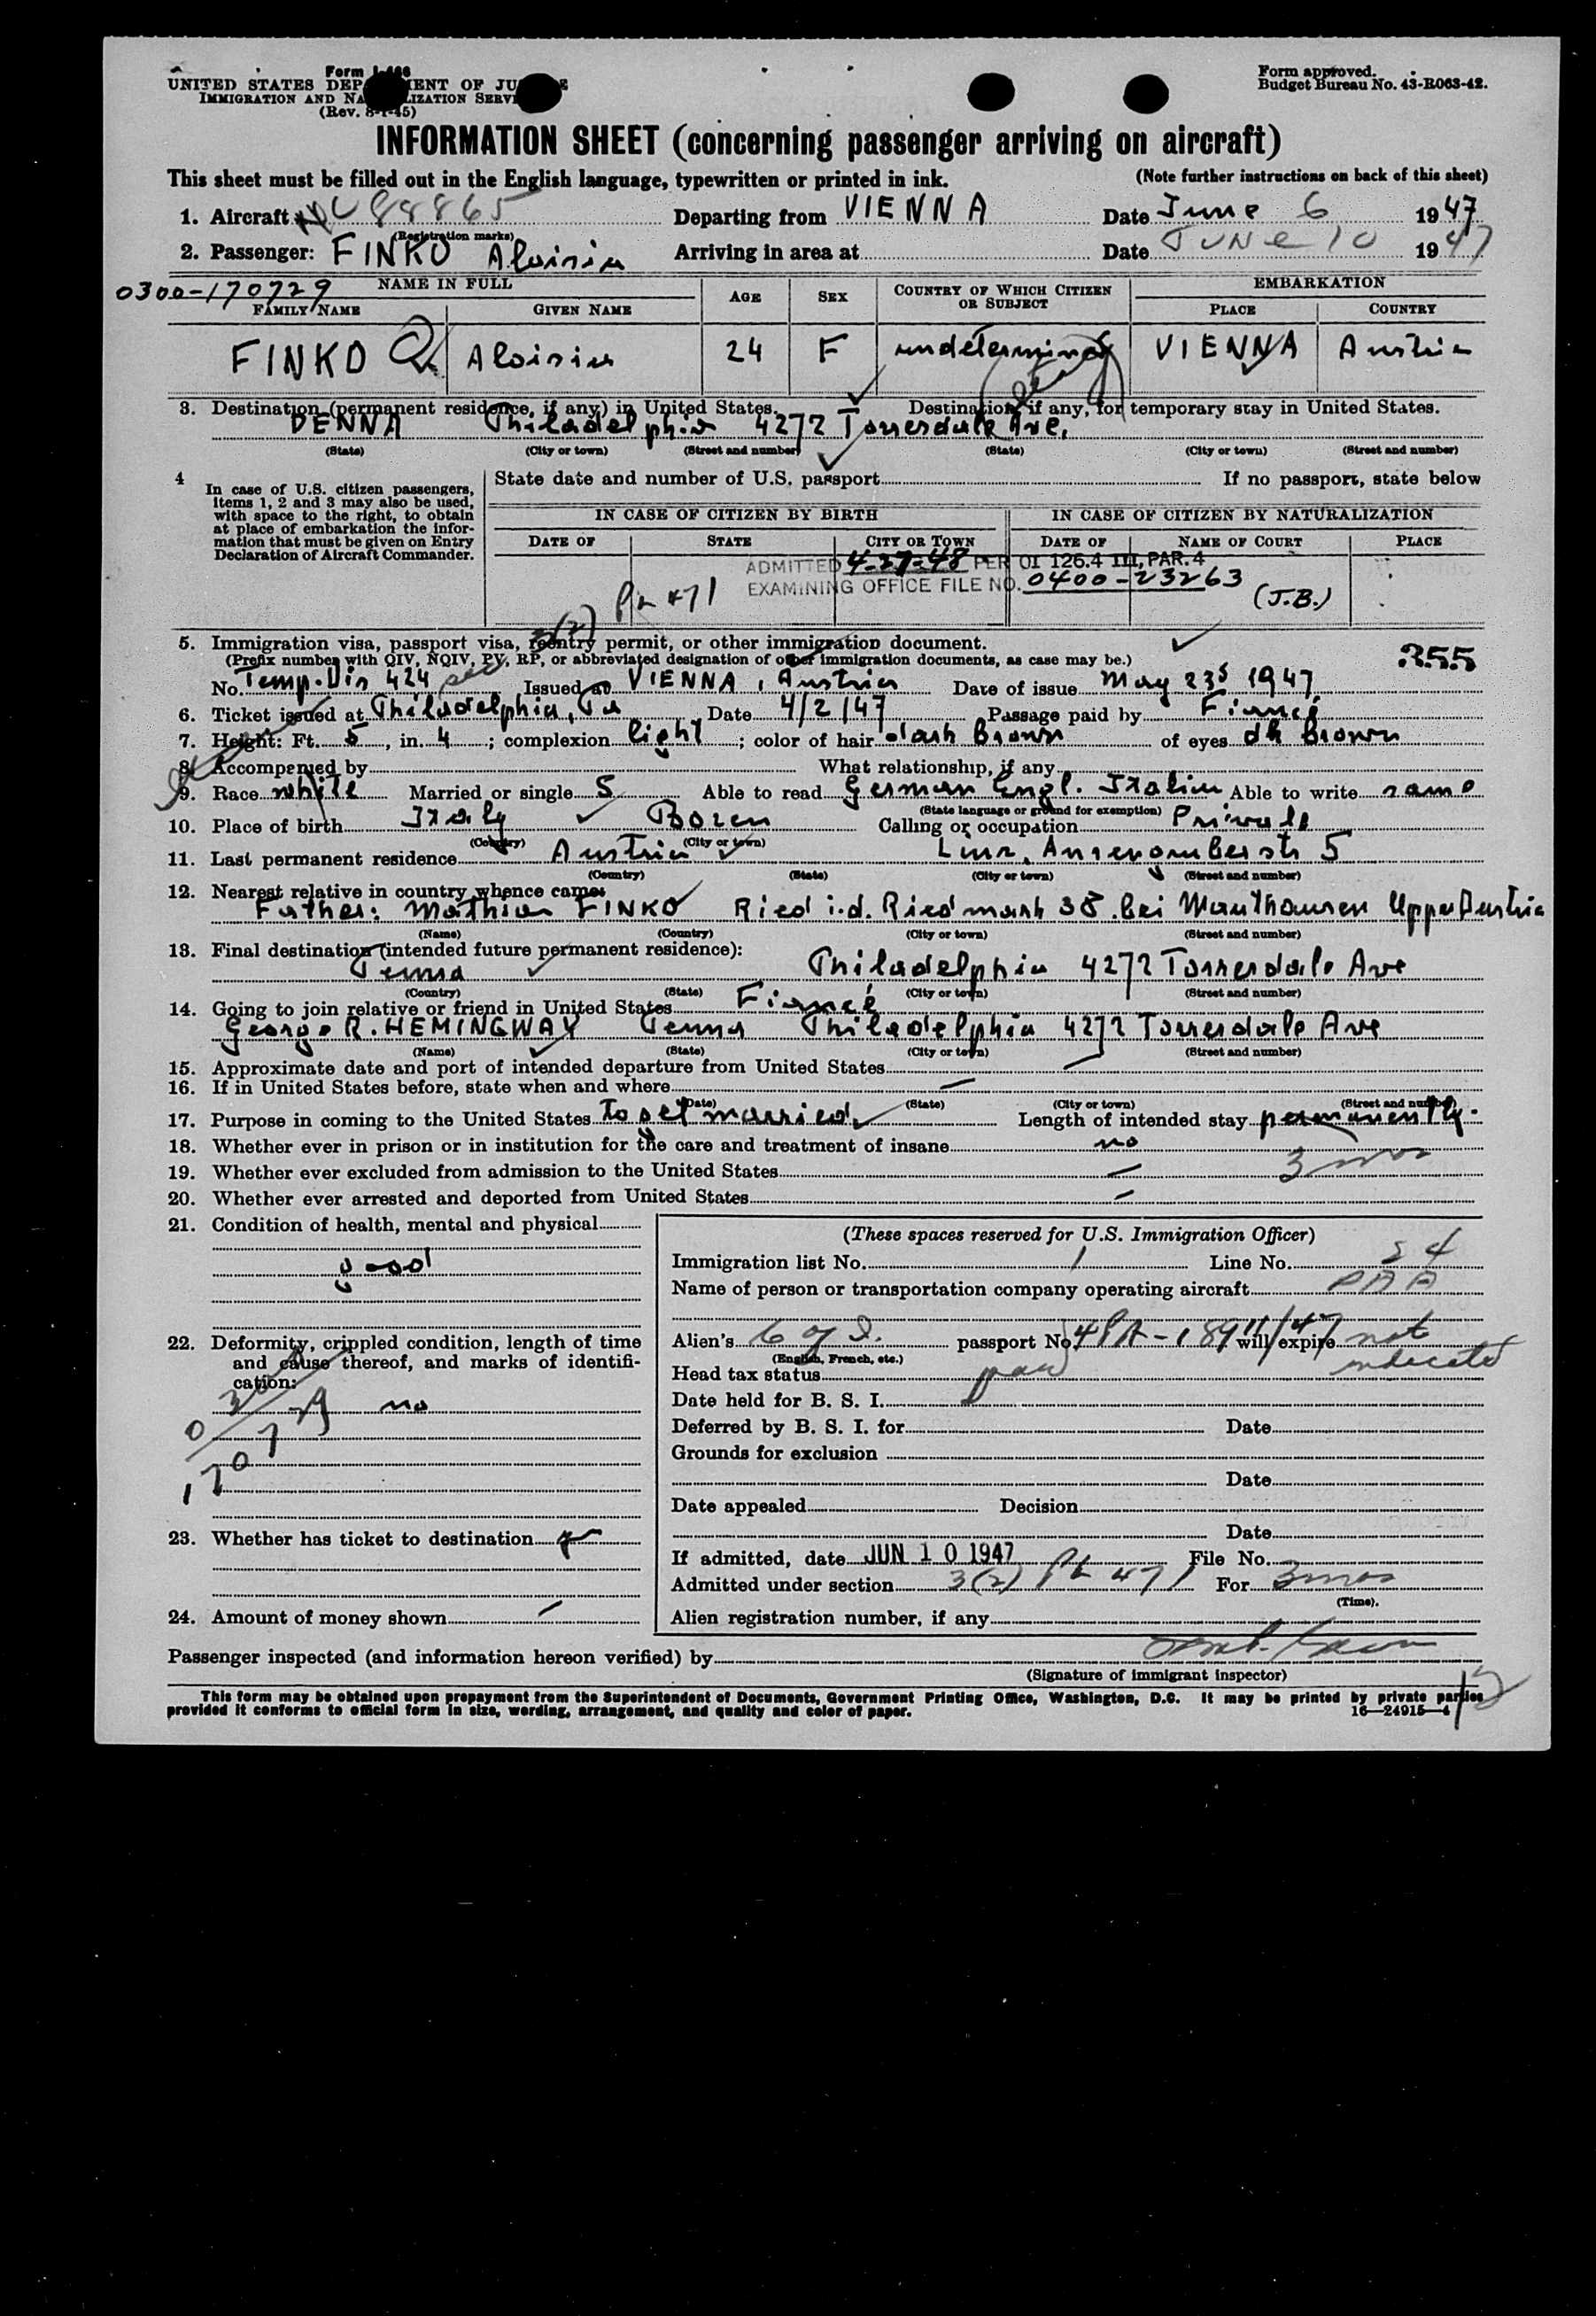 Form I-466
UNITED STATES DEPARTMENT OF JUSTICE
IMMIGRATION AND NATURALIZATION SERVICE
(Rev. 8-1-45)
Form approved.
Budget Bureau No. 43-R063-42.
INFORMATION SHEET (concerning passenger arriving on aircraft)
This sheet must be filled out in the English language, typewritten or printed in ink. (Note further instructions on back of this sheet)
1. Aircraft NC 88865 Departing from VIENNA Date June 6 1947
(Registration marks)
2. Passenger: FINKO Aloisia Arriving in area at Date June 10 1947
0300-170729 NAME IN FULL AGE SEX COUNTRY OF WHICH CITIZEN OR SUBJECT EMBARKATION
FAMILY NAME GIVEN NAME PLACE COUNTRY
FINKO Aloisia 24 F undetermined VIENNA Austria
3. Destination (permanent residence, if any) in United States. Destination, if any, for temporary stay in United States.
PENNA Philadelphia 4272 Torresdale Ave.
(State) (City or town) (Street and number) (State) (City or town) (Street and number)
4 In case of U.S. citizen passengers, items 1, 2 and 3 may also be used, with space to the right, to obtain at place of embarkation the information that must be given on Entry Declaration of Aircraft Commander.
State date and number of U.S. passport If no passport, state below
IN CASE OF CITIZEN BY BIRTH IN CASE OF CITIZEN BY NATURALIZATION
DATE OF STATE CITY OR TOWN DATE OF NAME OF COURT PLACE
ADMITTED 4-27-48 PER OI 126.4 III, PAR. 4
EXAMINING OFFICE FILE NO. 0400-23263
(J.B.)
3(2) PL 471
5. Immigration visa, passport visa, reentry permit, or other immigration document.
(Prefix number with QIV, NQIV, PV, RP, or abbreviated designation of other immigration documents, as case may be.)
355
No. Temp. Vis 424 Issued at VIENNA, Austria Date of issue May 23 1947
6. Ticket issued at Philadelphia, Pa Date 4/2/47 Passage paid by Fiancé
7. Height: Ft. 5, in. 4; complexion light; color of hair dark brown of eyes dk brown
8. Accompanied by What relationship, if any
9. Race white Married or single S Able to read German Engl. Italian Able to write same
(State language or ground for exemption)
10. Place of birth Italy Bozen Calling or occupation Private
(Country) (City or town)
11. Last permanent residence Austria Linz, 5
(Country) (State) (City or town) (Street and number)
12. Nearest relative in country whence came:
Father: Mathias FINKO Ried i.d. Riedmark 38 bei Mauthausen Upper Austria
(Name) (Country) (City or town) (Street and number)
13. Final destination (intended future permanent residence):
Penna Philadelphia 4272 Torresdale Ave
(Country) (State) (City or town) (Street and number)
14. Going to join relative or friend in United States Fiancé
George R. HEMINGWAY Penna Philadelphia 4272 Torresdale Ave
(Name) (State) (City or town) (Street and number)
15. Approximate date and port of intended departure from United States
16. If in United States before, state when and where —
(Date) (State) (City or town) (Street and number)
17. Purpose in coming to the United States To get married Length of intended stay permanently.
18. Whether ever in prison or in institution for the care and treatment of insane no
3 mos
19. Whether ever excluded from admission to the United States —
20. Whether ever arrested and deported from United States —
21. Condition of health, mental and physical
good
22. Deformity, crippled condition, length of time and cause thereof, and marks of identification:
no
0300
170729
23. Whether has ticket to destination
24. Amount of money shown —
(These spaces reserved for U.S. Immigration Officer)
Immigration list No. 1 Line No. 24
Name of person or transportation company operating aircraft PAA
Alien's C of I. passport No. will expire not indicated
(English, French, etc.)
Head tax status
Date held for B. S. I.
Deferred by B. S. I. for Date
Grounds for exclusion
Date
Date appealed Decision
Date
If admitted, date JUN 10 1947 File No.
Admitted under section 3(2) PL 471 For 3 mos
(Time).
Alien registration number, if any
Passenger inspected (and information hereon verified) by
(Signature of immigrant inspector)
This form may be obtained upon prepayment from the Superintendent of Documents, Government Printing Office, Washington, D.C. It may be printed by private parties
provided it conforms to official form in size, wording, arrangement, and quality and color of paper. 16—24915-4